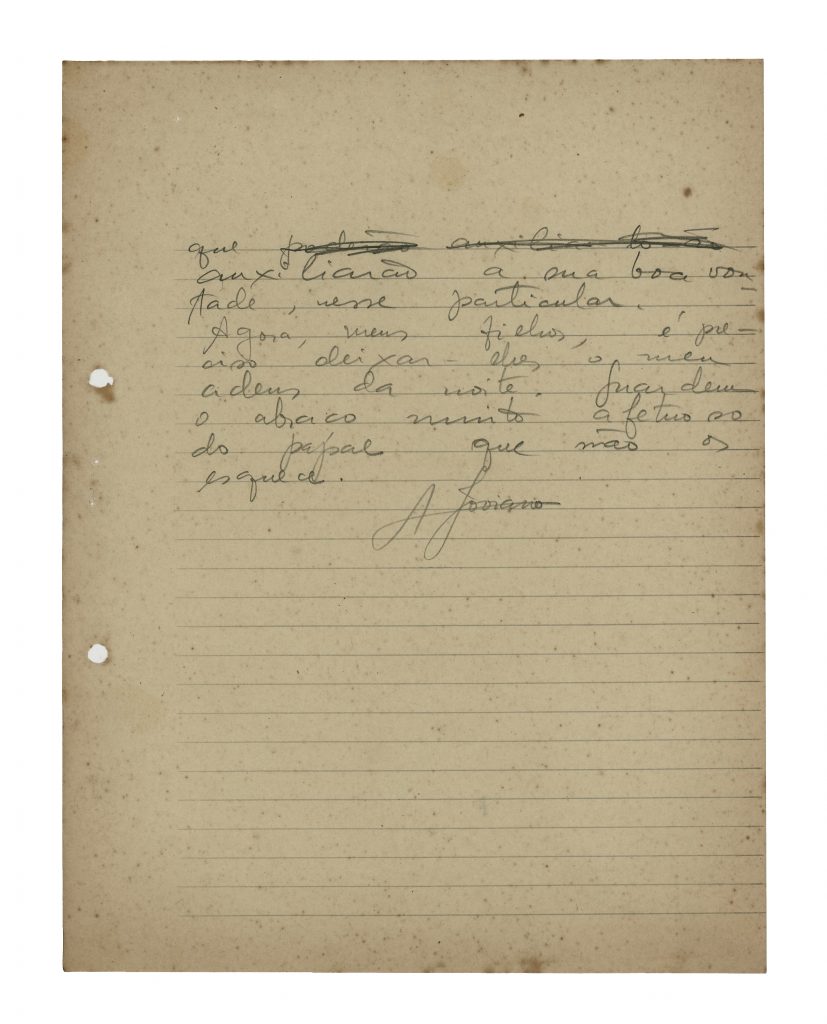 que poderão auxiliar
auxiliarão a sua boa von-
tade, nesse particular.
Agora, meus filhos, é pre-
ciso deixar-lhes o meu
adeus da noite. Guardem
o abraço muito afetuoso
do papae que não os
esquece.
A Joviano